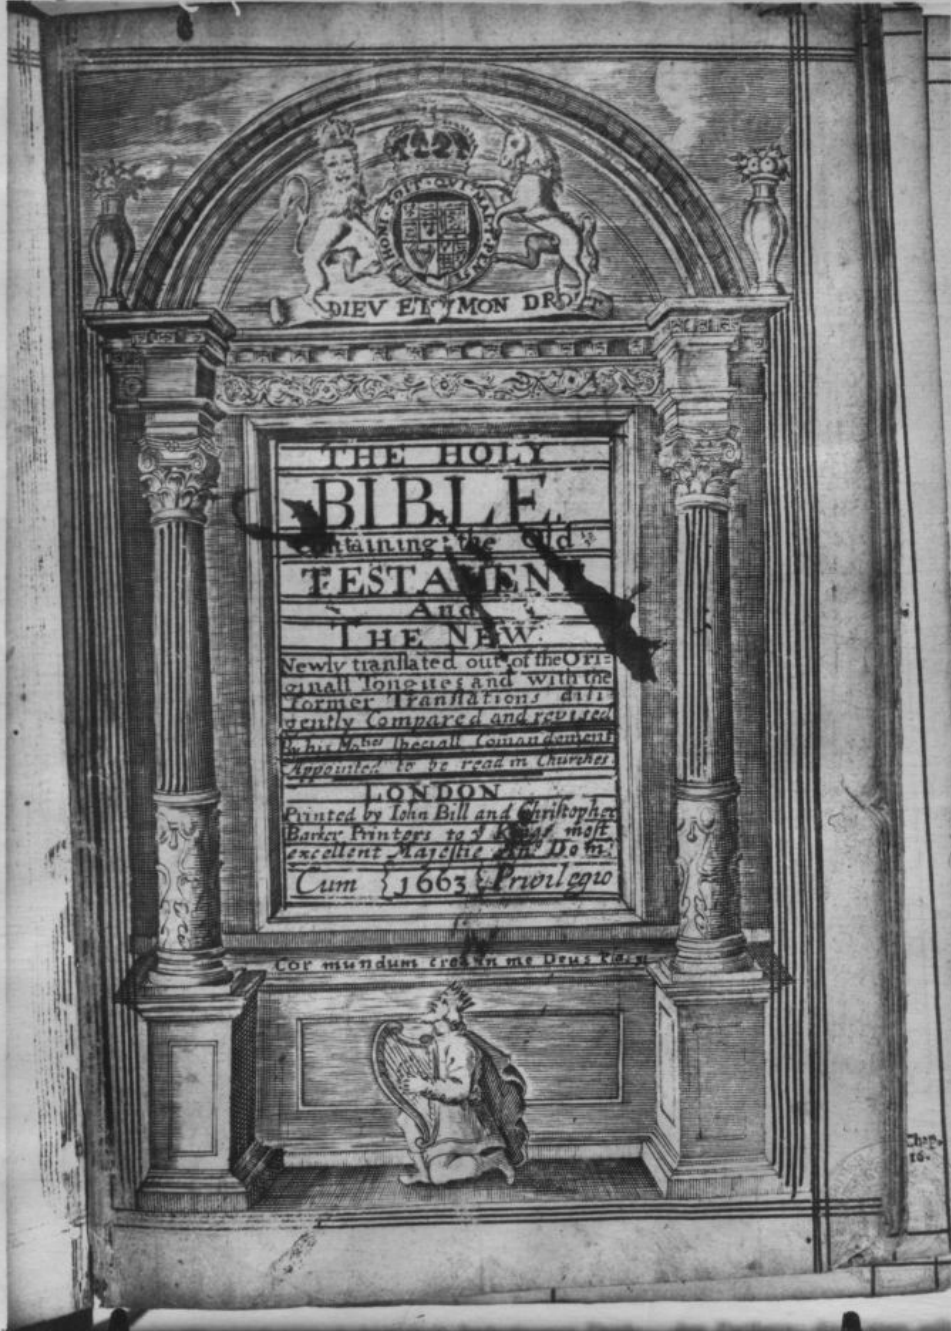 HONI · SOIT · QVI · MAL · Y · PENSE
DIEV ET MON DROIT
THE HOLY
BIBLE
Containing the Old
TESTAMENT
And
THE NEW:
Newly tranſlated out of the Ori=
ginall Tongues and with the
former Tranſlations dili
gently Compared and reviſed
By his Maties ſpeciall Comandement
Appointed to be read in Churches.
LONDON
Printed by Iohn Bill and Chriſtopher
Barker Printers to ye Kings moſt
excellent Majeſtie Ano Dom:
Cum {1663} Privilegio
Cor mundum crea in me Deus
Chap.
16.